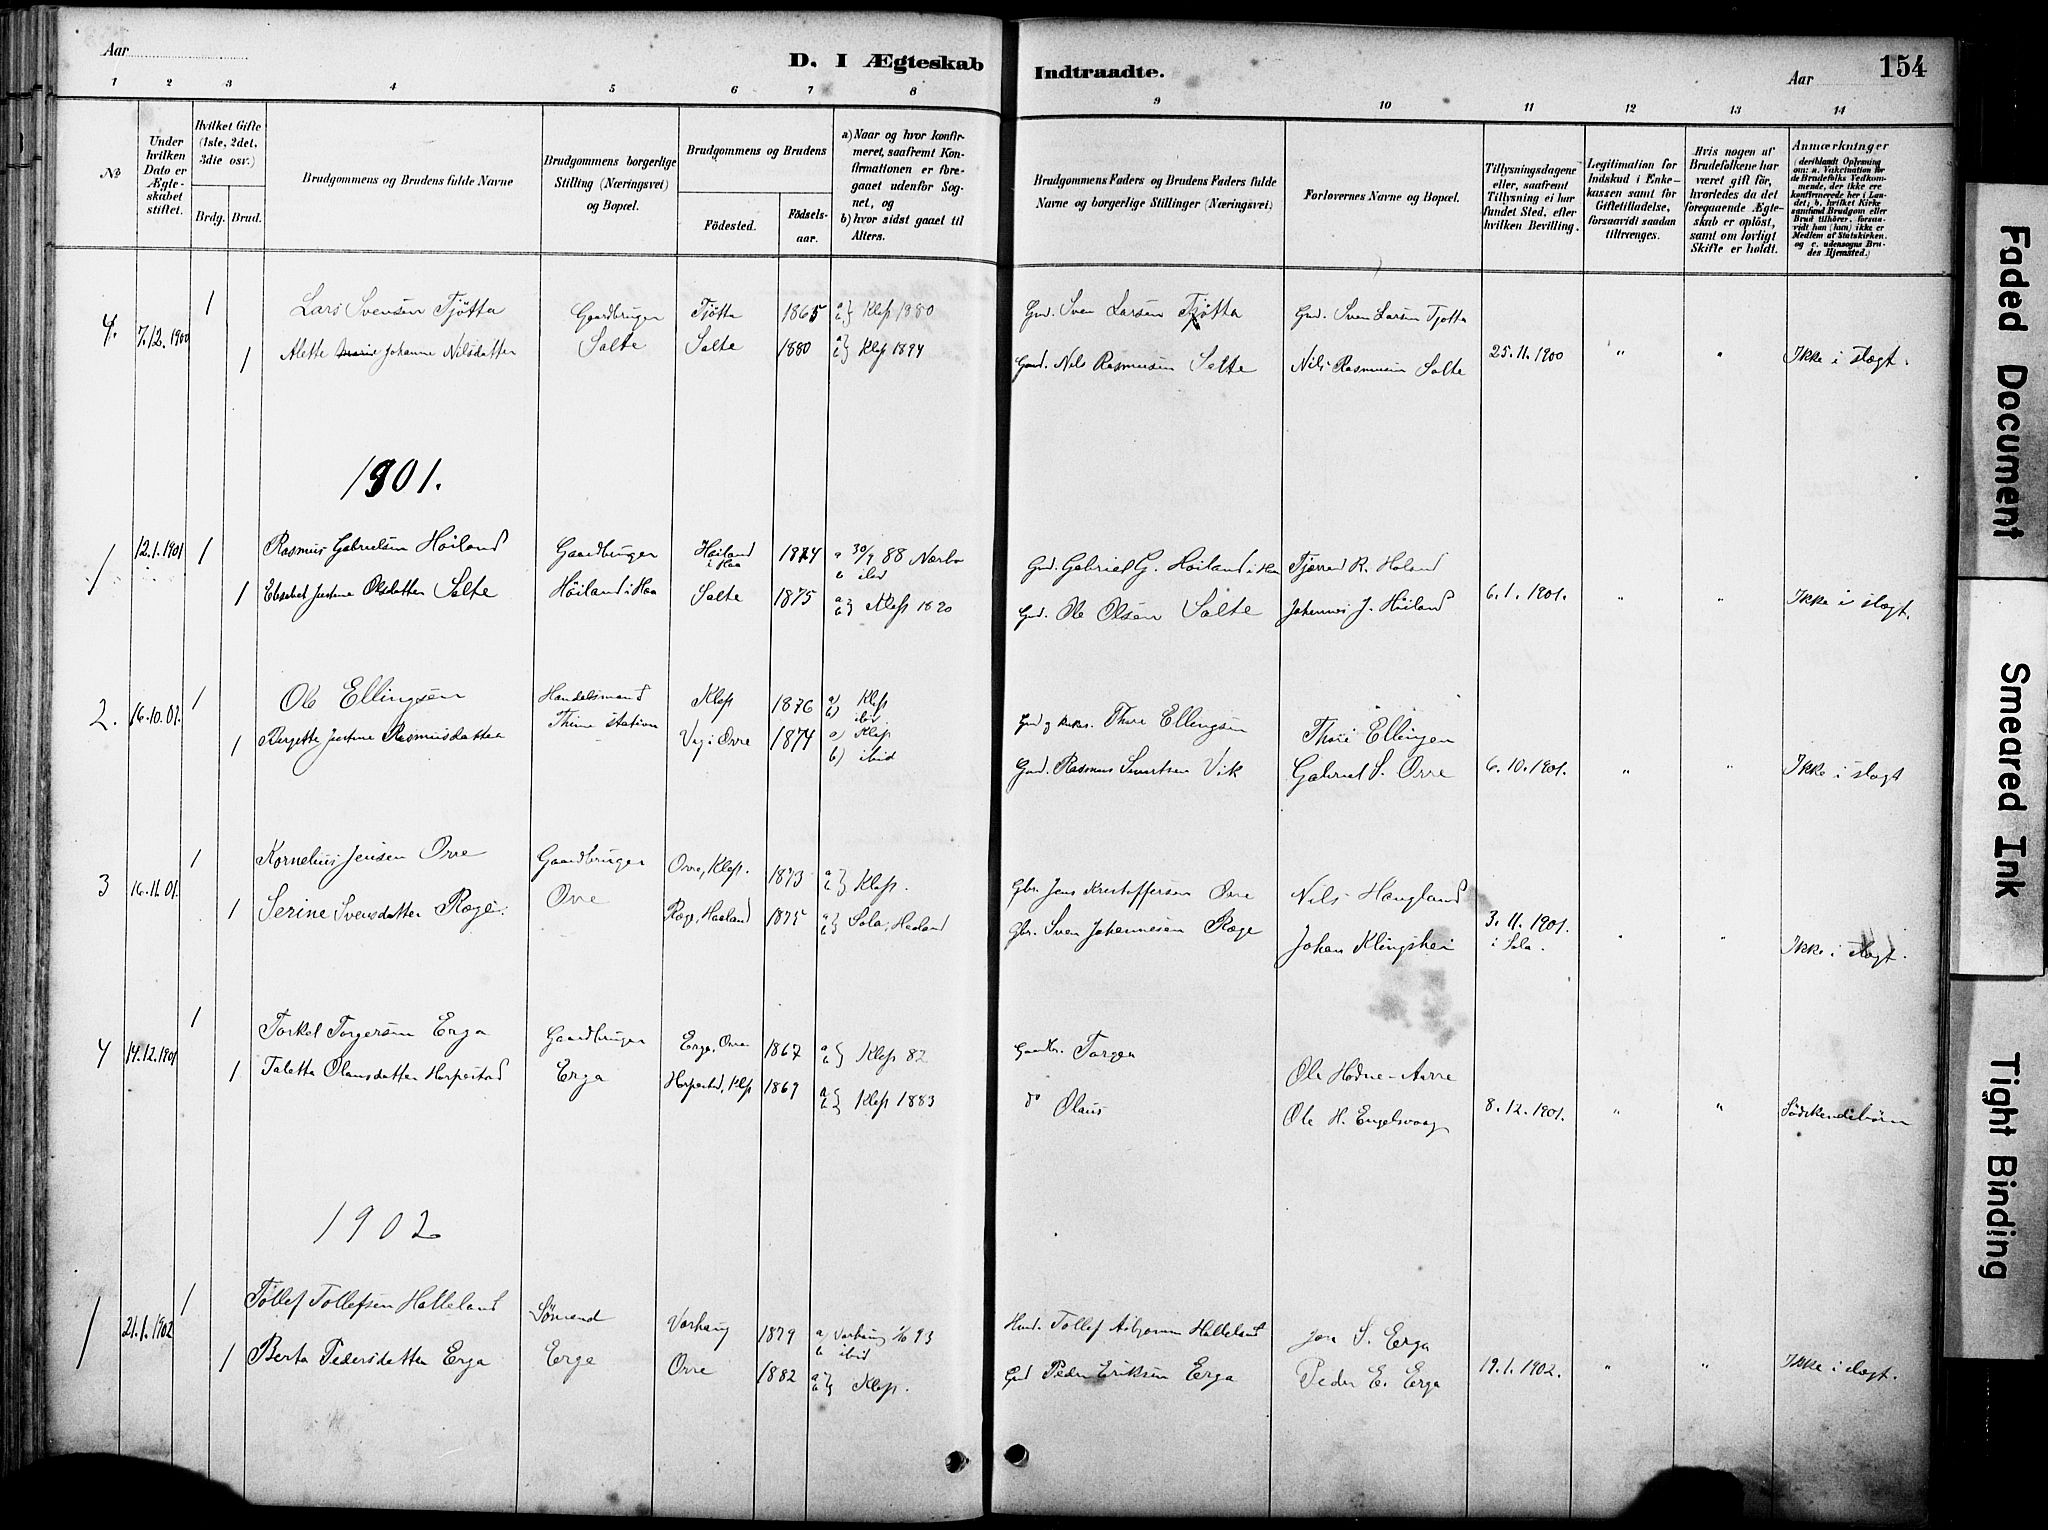 Aar
D. I Ægteskab Indtraadte.
Aar
154
1 2 3 4 5 6 7 8 9 10 11 12 13 14
No
Under hvilken Dato er Ægteskabet stiftet.
Hvilket Gifte (1ste, 2det, 3die osv.)
Brdg. Brud.
Brudgommens og Brudens fulde Navne
Brudgommens borgerlige Stilling (Næringsvei) og Bopæl.
Brudgommens og Brudens
Födested.
Födselsaar.
a) Naar og hvor konfirmeret, saafremt Konfirmationen er foregaaet udenfor Sognet, og
b) hvor sidst gaaet til Alters.
Brudgommens Faders og Brudens Faders fulde Navne og borgerlige Stillinger (Næringsvei)
Forlovernes Navne og Bopæl.
Tillysningsdagene eller, saafremt Tillysning ei har fundet Sted, efter hvilken Bevilling.
Legitimation for Indskud i Enkekassen samt for Giftetilladelse, forsaavidt saadan tiltrænges.
Hvis nogen af Brudefolkene har været gift för, hvorledes da det foregaaende Ægteskab er oplöst, samt om lovligt Skifte er holdt.
Anmærkninger
(deriblandt Oplysning om: a. Vakcination for de Brudefolks Vedkommende, der ikke ere konfirmerede her i Landet; b. hvilket Kirkesamfund Brudgom eller Brud tilhörer, forsaavidt han (hun) ikke er Medlem af Statskirken, og c. udensogns Brudes Hjemsted.)
4. 7.12.1900 1 Lars Svensen Tjøtta Gaardbruger Tjøtta 1865 a b } Klep 1880 Gmd. Sven Larsen Tjøtta Gmd. Sven Larsen Tjotta
1 Alette Johanne Nilsdatter Salte Salte 1880 a b } Klep 1894 Gmd. Nils Rasmussen Salte Nils Rasmusen Salte 25.11.1900 " " Ikke i slægt.
1901.
1 12.1.1901 1 Rasmus Gabrielsen Höiland Gaardbruger Höiland i Haa 1874 a 30/9 88 Nærbø b ibid Gmd. Gabriel G. Höiland i Haa R. Höland
1 Elisabet Justine Olsdatter Salte Höiland i Haa Salte 1875 a b } Klep 1890 Gmd. Ole Olsen Salte Johannes J. Höiland 6.1.1901. " " Ikke i slægt.
2. 16.10.01. 1 Ole Ellingsen Handelsmand Klep 1876 a) Klep b) ibid Thore Ellingsen Thore Ellingsen
1 Bergette Justine Rasmusdatter Thime station Vig i Orre 1874 a) Klep b) ibid Gmd. Rasmus Sivertsen Vik Gabriel S. Orre 6.10.1901. " " Ikke i slægt
3 16.11.01. 1 Kornelius Jensen Orre Gaardbruger Orre, Klep. 1873 a b } Klep. Gbr. Jens Kristoffersen Orre Nils Haugland
1 Serine Svensdatter Røge. Orre Røge, Haaland 1875 a b } Sola, Haaland Gbr. Sven Johannesen Røge Johan Klingshei 3.11.1901. i Sola. " " Ikke i slægt.
4 14.12.1901 1 Torkel Torgersen Erga Gaardbruger Erga, Orre 1867 a b } Klep 82 Gaardbr. Torger Ole Hodne-Aarre
1 Taletta Olausdatter Horpestad Erga Horpestad, Klep 1869 a b } Klep 1883 do Olaus Ole H. Engelsvaag 8.12.1901. " " Södskendebörn
1902
1 21.1.1902 1 Tollef Tollefsen Halleland Sömand Varhaug 1879 a) Varhaug 93 b ibid Tollef Halleland S. Erga
1 Berta Pedersdatter Erga Erga Orre 1882 a b } Klep. Gmd Peder Eriksen Erga Peder E. Erga 19.1.1902. " " Ikke i slægt.
Faded Document
Smeared Ink
Tight Binding